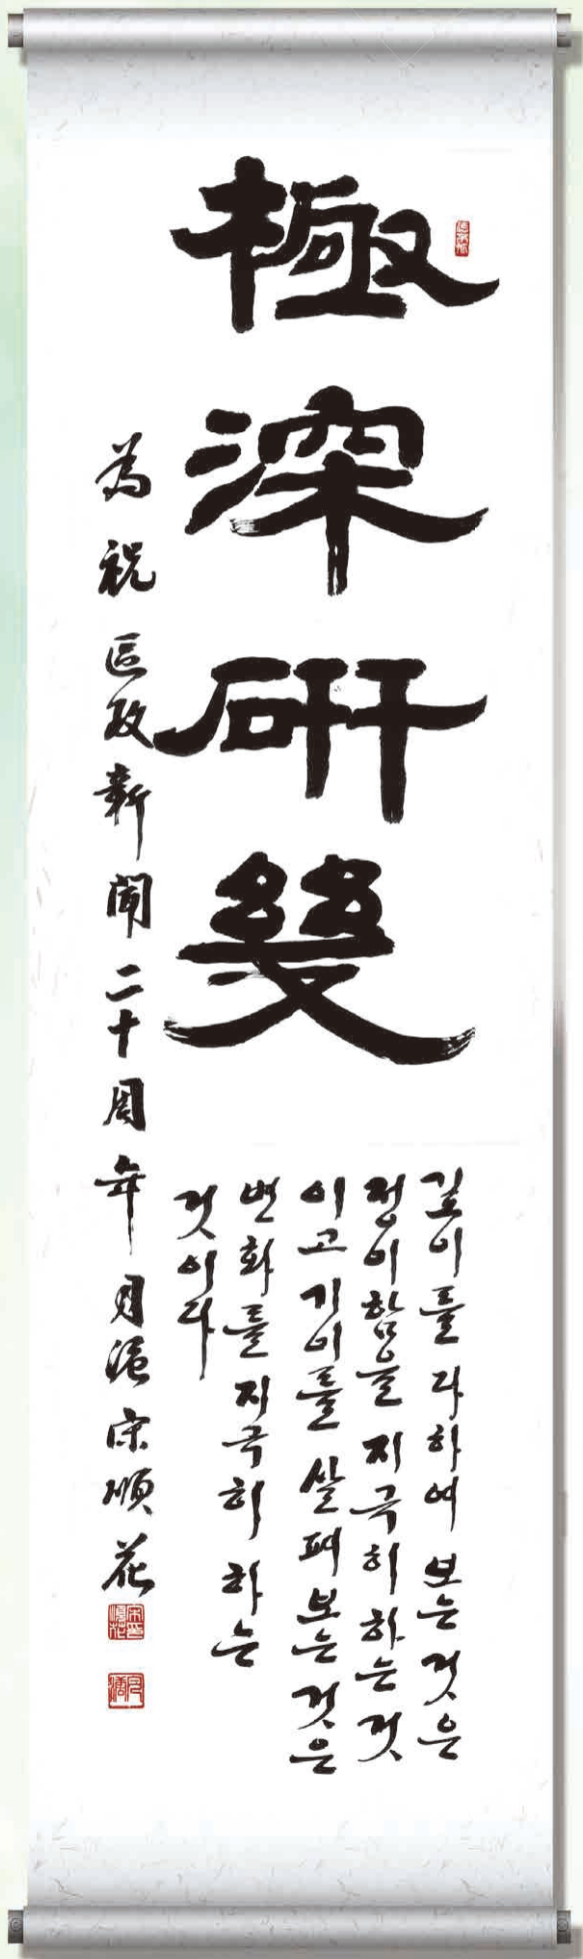 極深研幾
깊이를 다하여 보는 것은
정이함을 지극히 하는 것
이고 기이를 살펴보는 것은
변화를 지극히 하는
것이다
為祝區政新聞二十周年 月滬 宋順花